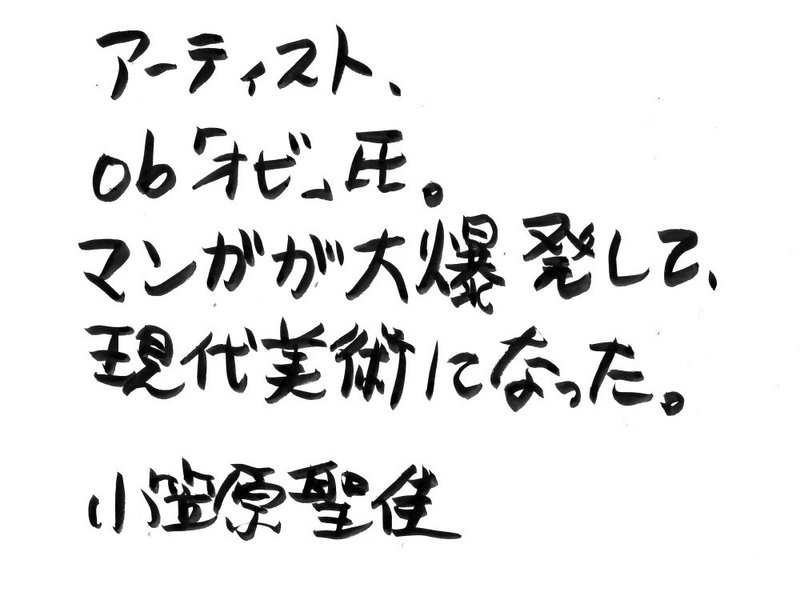 アーティスト、
ob「オビ」圧。
マンガが大爆発して、
現代美術になった。
小笠原聖佳